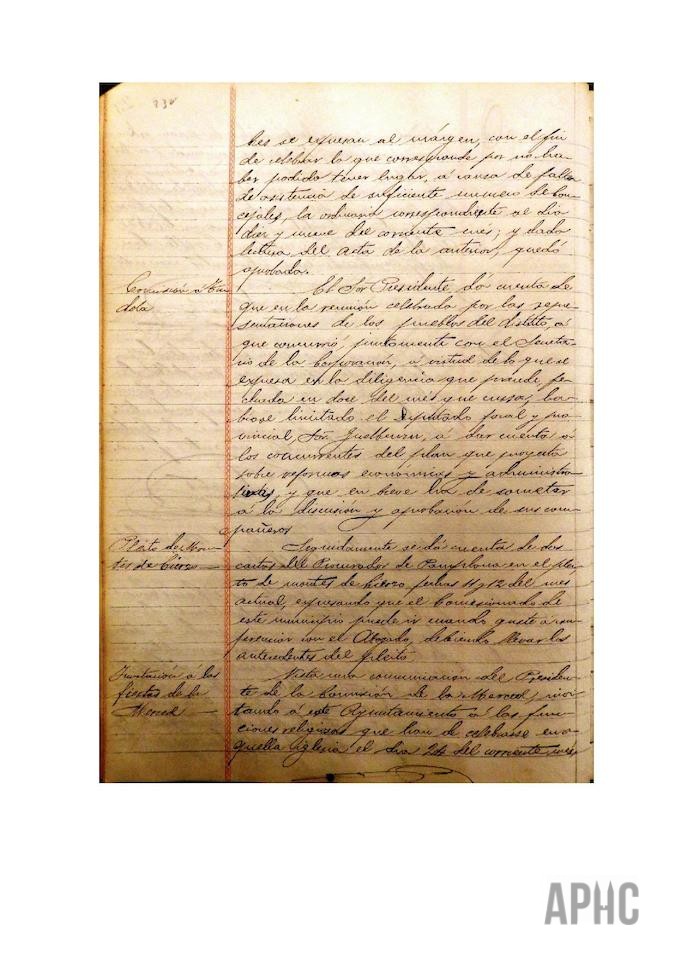 238
les se expresan al márgen, con el fin
de celebrar la que corresponde por no ha-
ber podido tener lugar, a causa de falta
de asistencia de suficiente número de con-
cejales, la ordinaria correspondiente al dia
diez y nueve del corriente mes; y dada
lectura del acta de la anterior, quedó
aprobada.
Comisión á Tu-
dela
El Sor Presidente, dá cuenta de
que en la reunión celebrada por las repre-
sentaciones de los pueblos del distrito, á
que concurrió juntamente con el Secreta-
rio de la Corporación, á virtud de lo que se
expresa en la diligencia que precede fe-
chada en doce del mes que cursa, ha-
biase limitado el Diputado foral y pro-
vincial, Sor. á dar cuenta á
los concurrentes del plan que proyecta
sobre reformas económicas y administra-
tivas, y que en breve ha de someter
á la discusión y aprobación de sus com-
pañeros
Pleito de Mon-
tes de Cierzo
Seguidamente se dá cuenta de dos
cartas del Procurador de Pamplona en el plei-
to de montes de Cierzo fechas 11 y 12 del mes
actual, expresando que el Comisionado de
este municipio puede ir cuando guste á con-
ferenciar con el Abogado, debiendo llevar los
antecedentes del pleito
Invitación á las
fiestas de la
Merced
Vista una comunicación del Presiden-
te de la Comisión de la Merced, invi-
tando á este Ayuntamiento á las fun-
ciones religiosas que han de celebrarse en a-
quella iglesia el dia 24 del corriente mes,
APHC